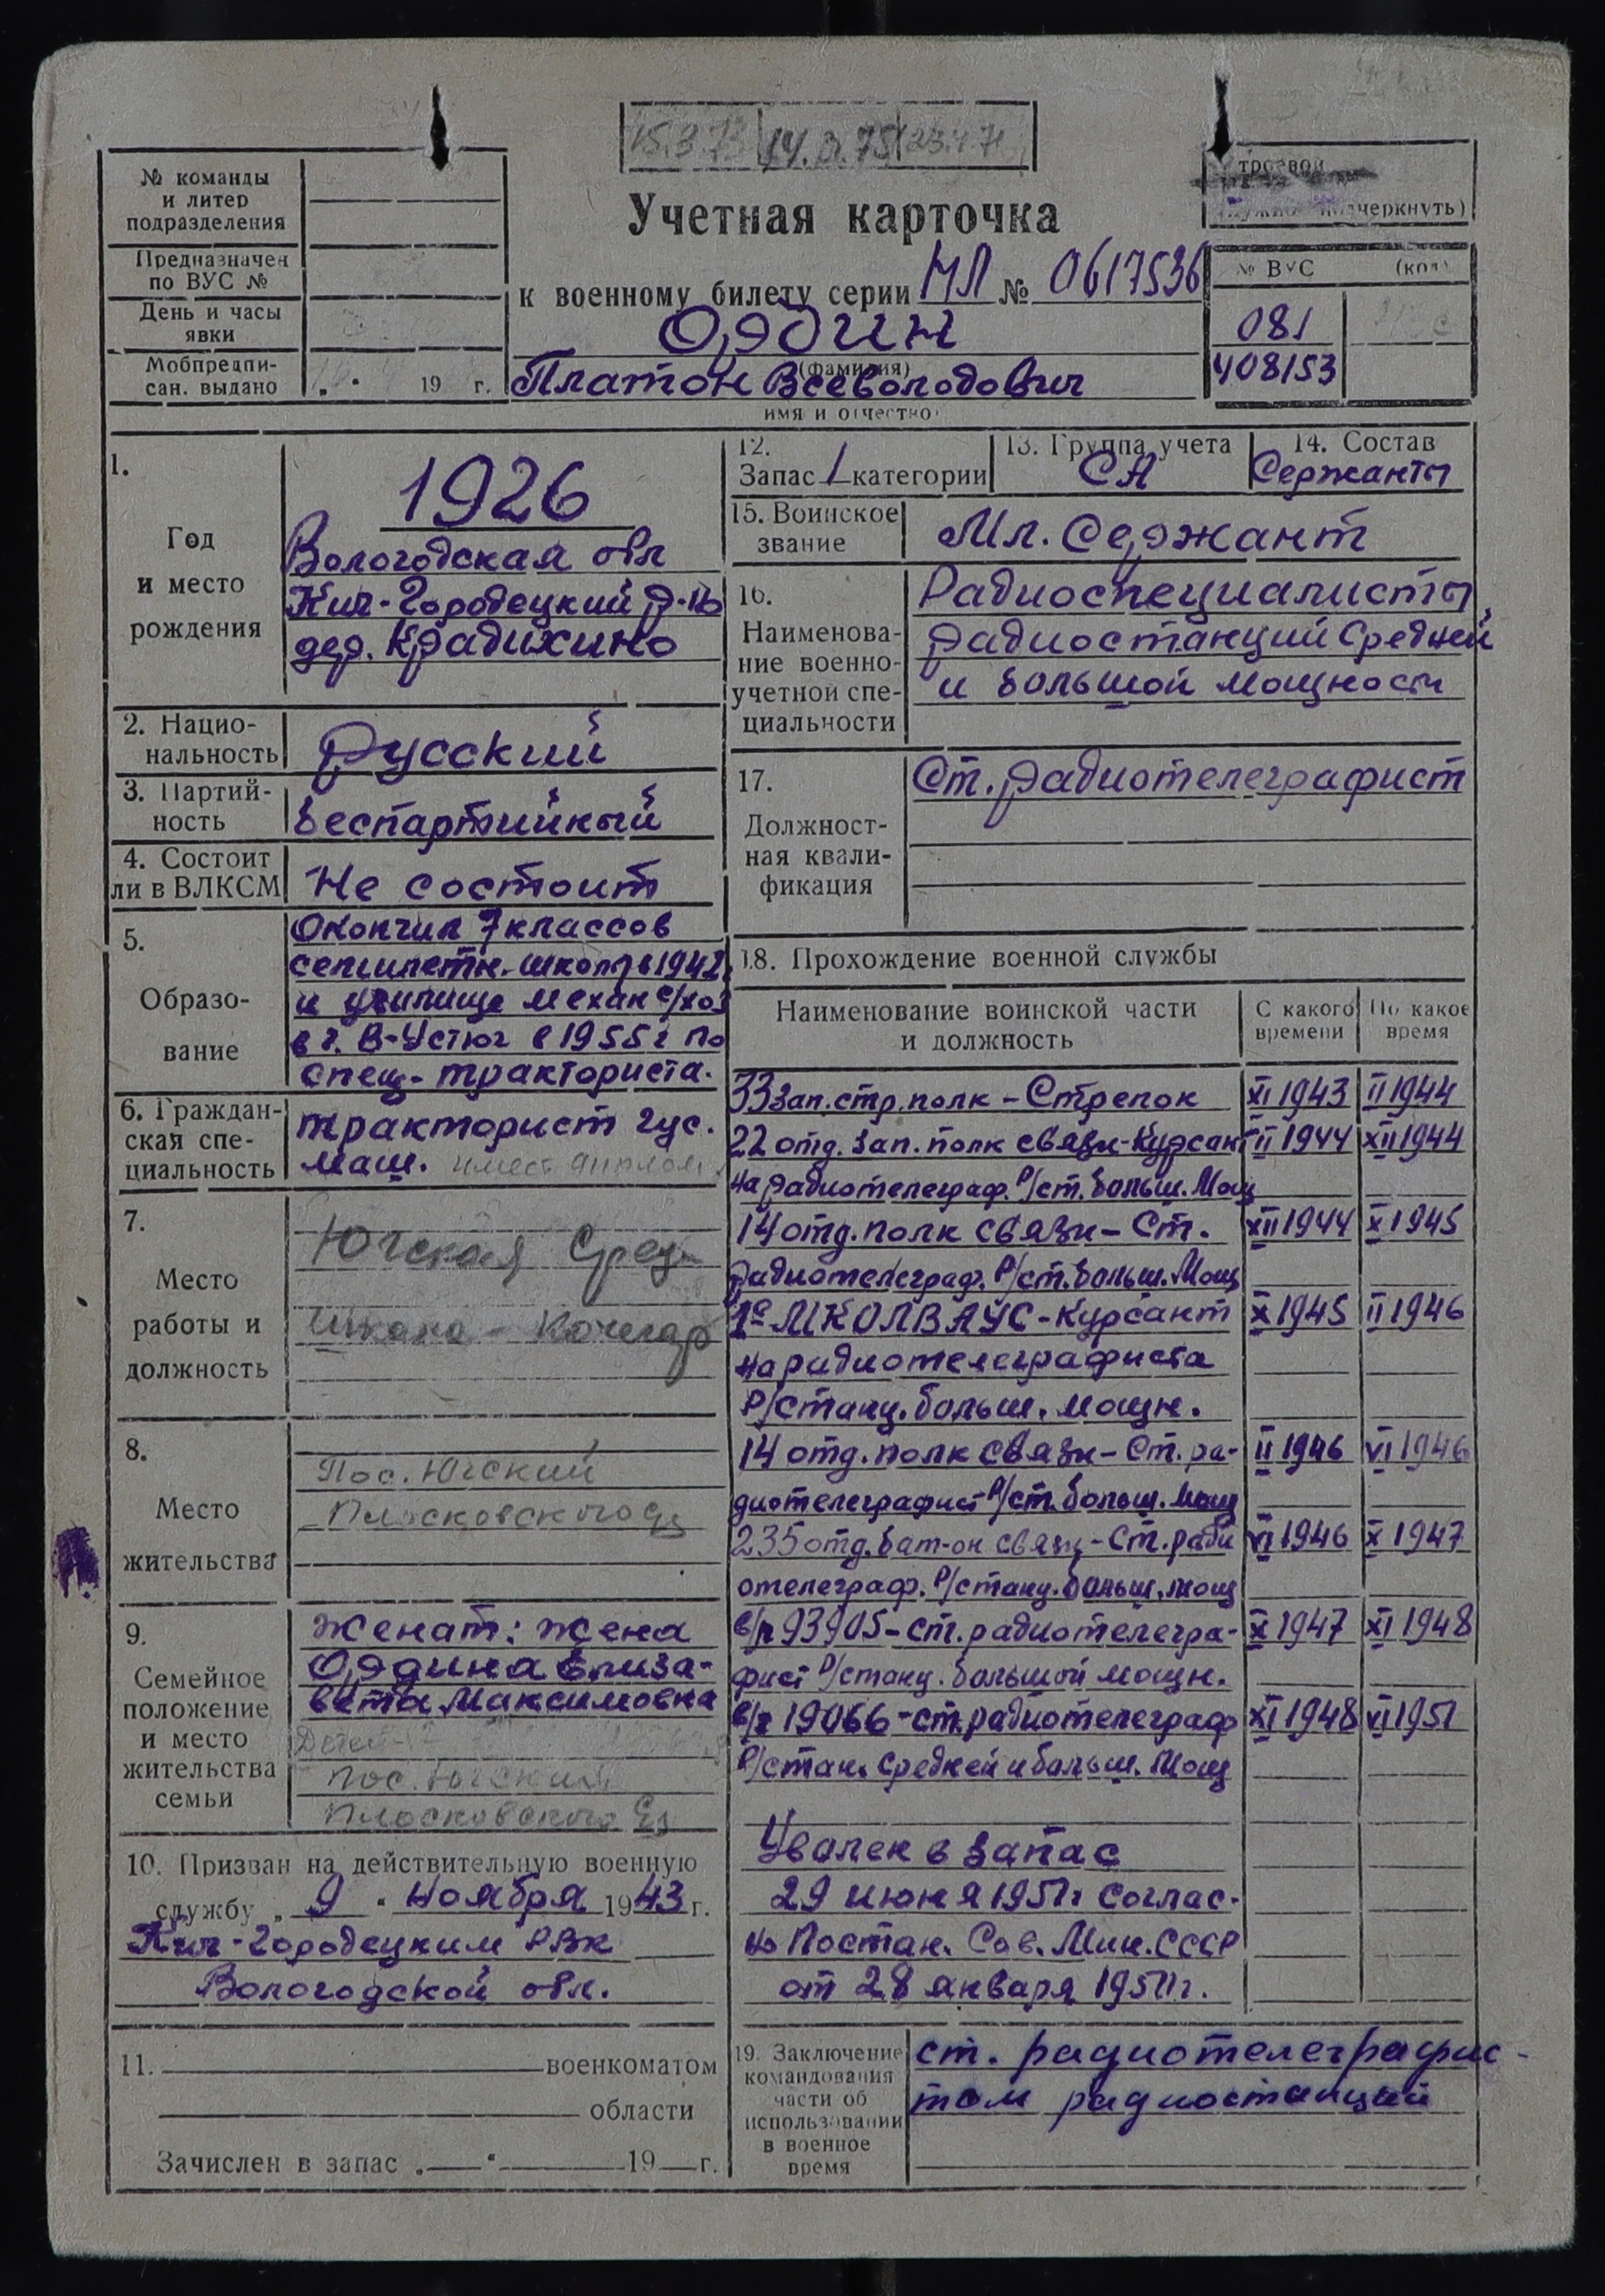 15.3.73 14.3.75 23.4.71
№ команды
и литер
подразделения
Предназначен
по ВУС №
День и часы
явки
Мобпредпи-
сан. выдано „ " 19 г.
Учетная карточка
к военному билету серии МЛ № 0617536
Ордин
(фамилия)
Платон Всеволодович
имя и отчество
строевой
(нужное подчеркнуть)
№ ВУС (код)
081
408153
1.
Год
и место
рождения
1926
Вологодская обл
Кич-Городецкий р-н
дер. Крадихино
2. Нацио-
нальность
Русский
3. Партий-
ность
Беспартийный
4. Состоит
ли в ВЛКСМ
Не состоит
5.
Образо-
вание
Окончил 7 классов
семилетн. школы в 1942
и училище механ с/хоз
в г. В-Устюг в 1955 г по
спец. тракториста.
6. Граждан-
ская спе-
циальность
тракторист гус.
маш. имеет диплом
7.
Место
работы и
должность
Югская сред-
школа - кочегар
8.
Место
жительства
Пос. Югский
Плосковского
9.
Семейное
положение
и место
жительства
семьи
Женат: жена
Ордина Елиза-
вета Максимовна
Детей
пос. Югский
Плосковского
10. Призван на действительную военную
службу „ 9 " ноября 1943 г.
Кич-Городецким РВК
Вологодской обл.
11. военкоматом
области
Зачислен в запас „ " 19 г.
12.
Запас 1 категории
13. Группа учета
СА
14. Состав
Сержанты
15. Воинское
звание
Мл. Сержант
16.
Наименова-
ние военно-
учетной спе-
циальности
Радиоспециалисты
радиостанций Средней
и большой мощности
17.
Должност-
ная квали-
фикация
Ст. радиотелеграфист
18. Прохождение военной службы
Наименование воинской части
и должность
С какого
времени
По какое
время
33 зап. стр. полк - Стрелок XI 1943 II 1944
22 отд. зап. полк связи - Курсант II 1944 XII 1944
на радиотелеграф. Р/ст. больш. Мощ
14 отд. полк связи - Ст. XII 1944 X 1945
радиотелеграф. Р/ст. больш. Мощ
1е МКОЛВАУС - Курсант X 1945 II 1946
на радиотелеграфиста
Р/станц. больш. мощн.
14 отд. полк связи - Ст. ра- II 1946 VI 1946
диотелеграфист Р/ст. больш. мощ
235 отд. бат-он связи - Ст. ради VI 1946 X 1947
отелеграф. Р/станц. больш. мощ
в/ч 93905 - ст. радиотелегра- X 1947 XI 1948
фист Р/станц. большой мощн.
в/ч 19066 - ст. радиотелеграф XI 1948 VI 1951
Р/стан. Средней и больш. Мощ
Уволен в запас
29 июня 1951 г соглас-
но Постан. Сов. Мин. СССР
от 28 января 1951 г.
19. Заключение
командования
части об
использовании
в военное
время
ст. радиотелеграфис-
том радиостанций